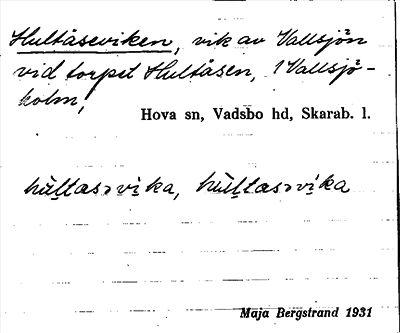 Hultåseviken, vik av Vallsjön
vid torpet Hultåsen, 1 Vallsjö-
holm,
Hova sn, Vadsbo hd, Skarab. l.
Maja Bergstrand 1931